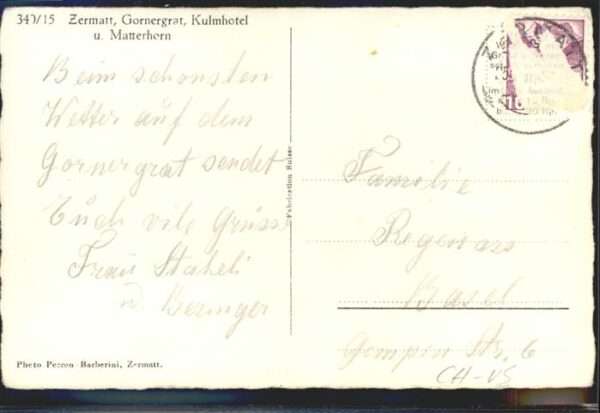 340/15 Zermatt, Gornergrat, Kulmhotel
u. Matterhorn
Beim schonsten
Wetter auf dem
Gornergrat sendet
Euch vile Grüsse
Frau Staheli
u Beringer
Photo Perren-Barberini, Zermatt.
Fabrication Suisse
ZERMATT
10
Familie
Basel
Str. 6
CH-VS